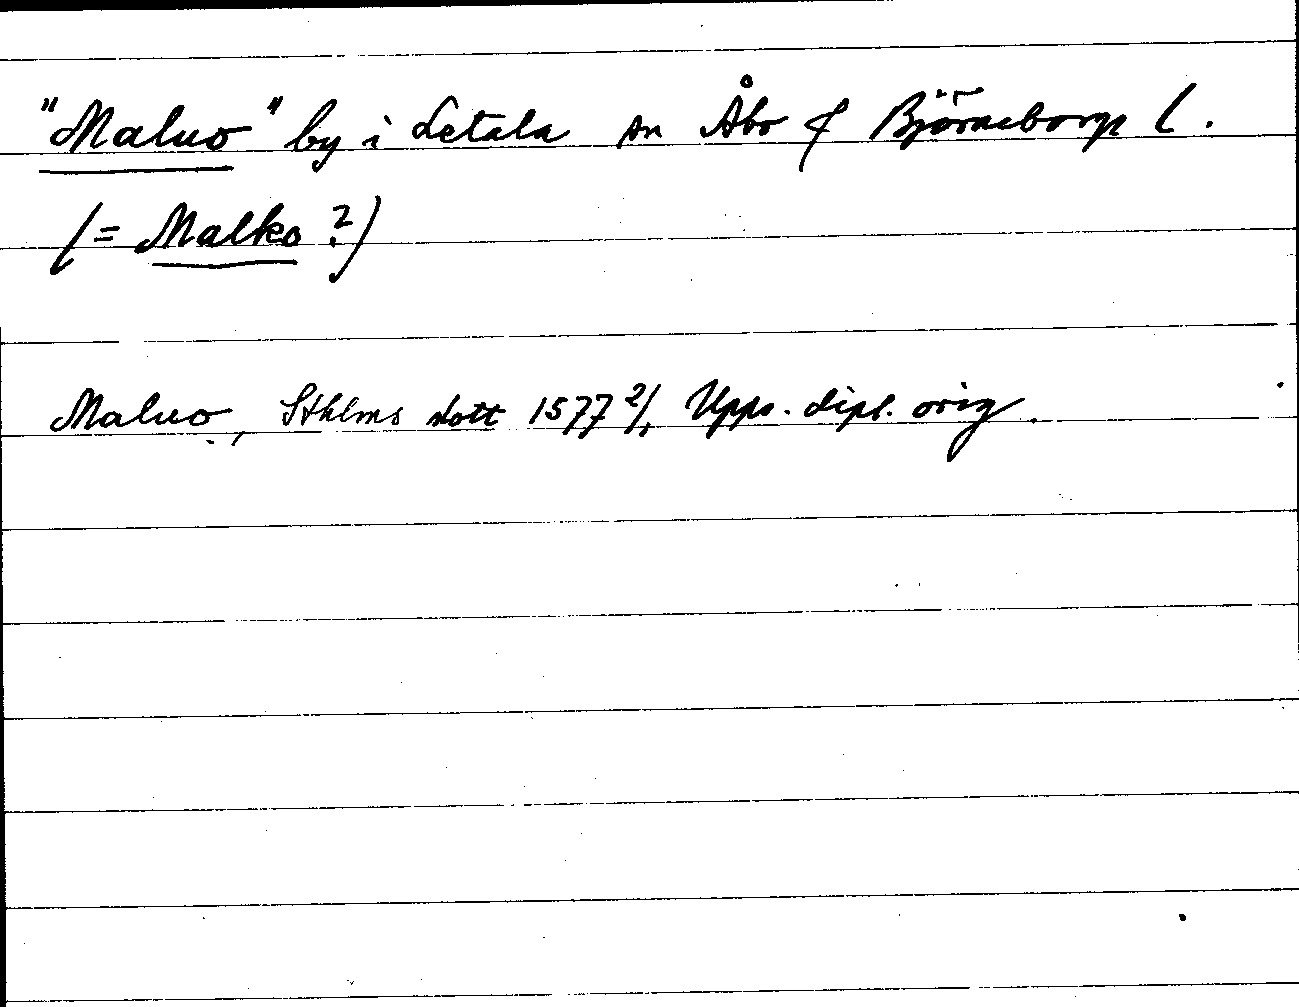 "Maluo" by i Letala sn Åbo & Björneborgs l.
(= Malko ?)
Maluo, Sthlms slott 1577 2/1 Upps. dipl. orig.